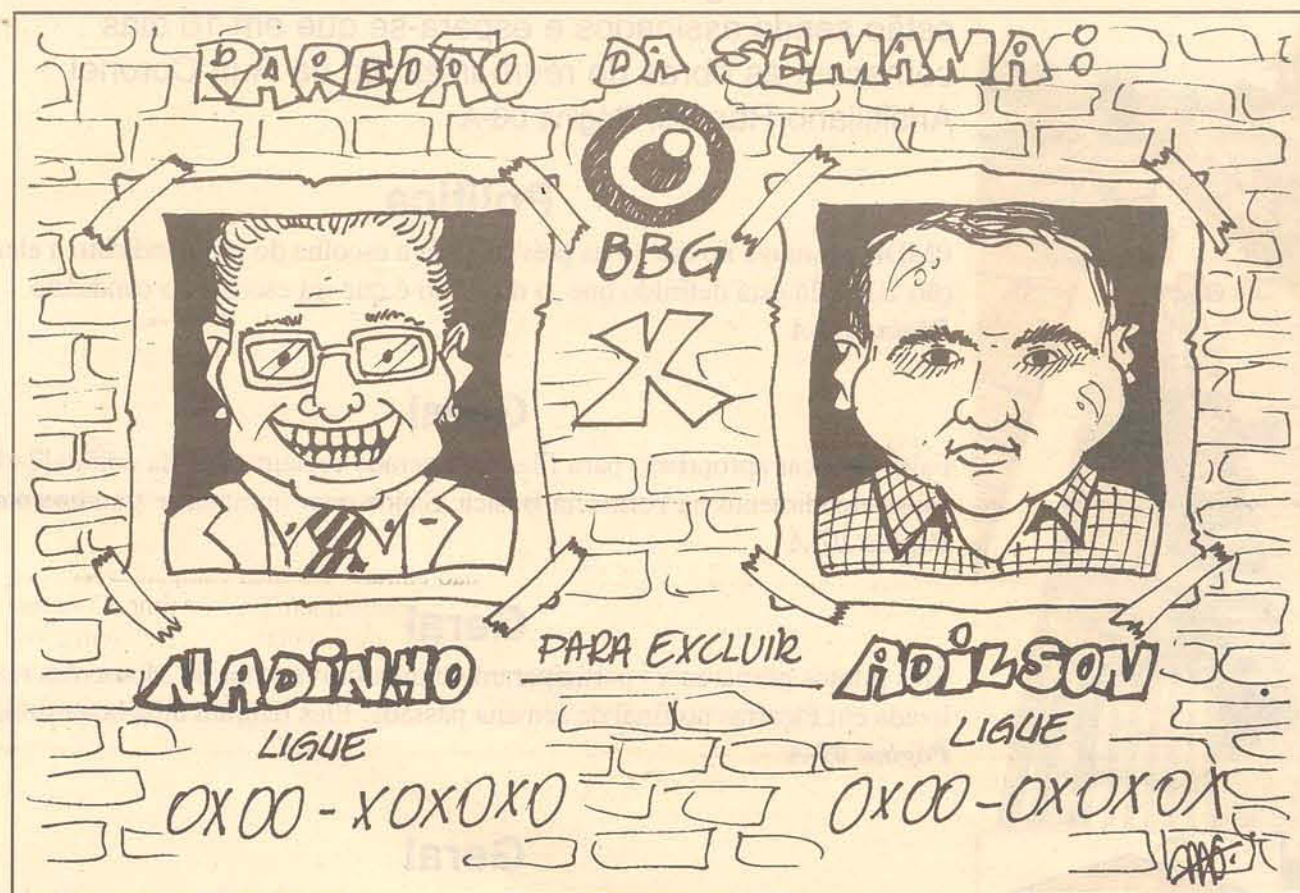 PAREDÃO DA SEMANA:
BBG
X
NADINHO
PARA EXCLUIR
ADILSON
LIGUE
LIGUE
0X00 - X0X0X0
0X00 - 0X0X0X